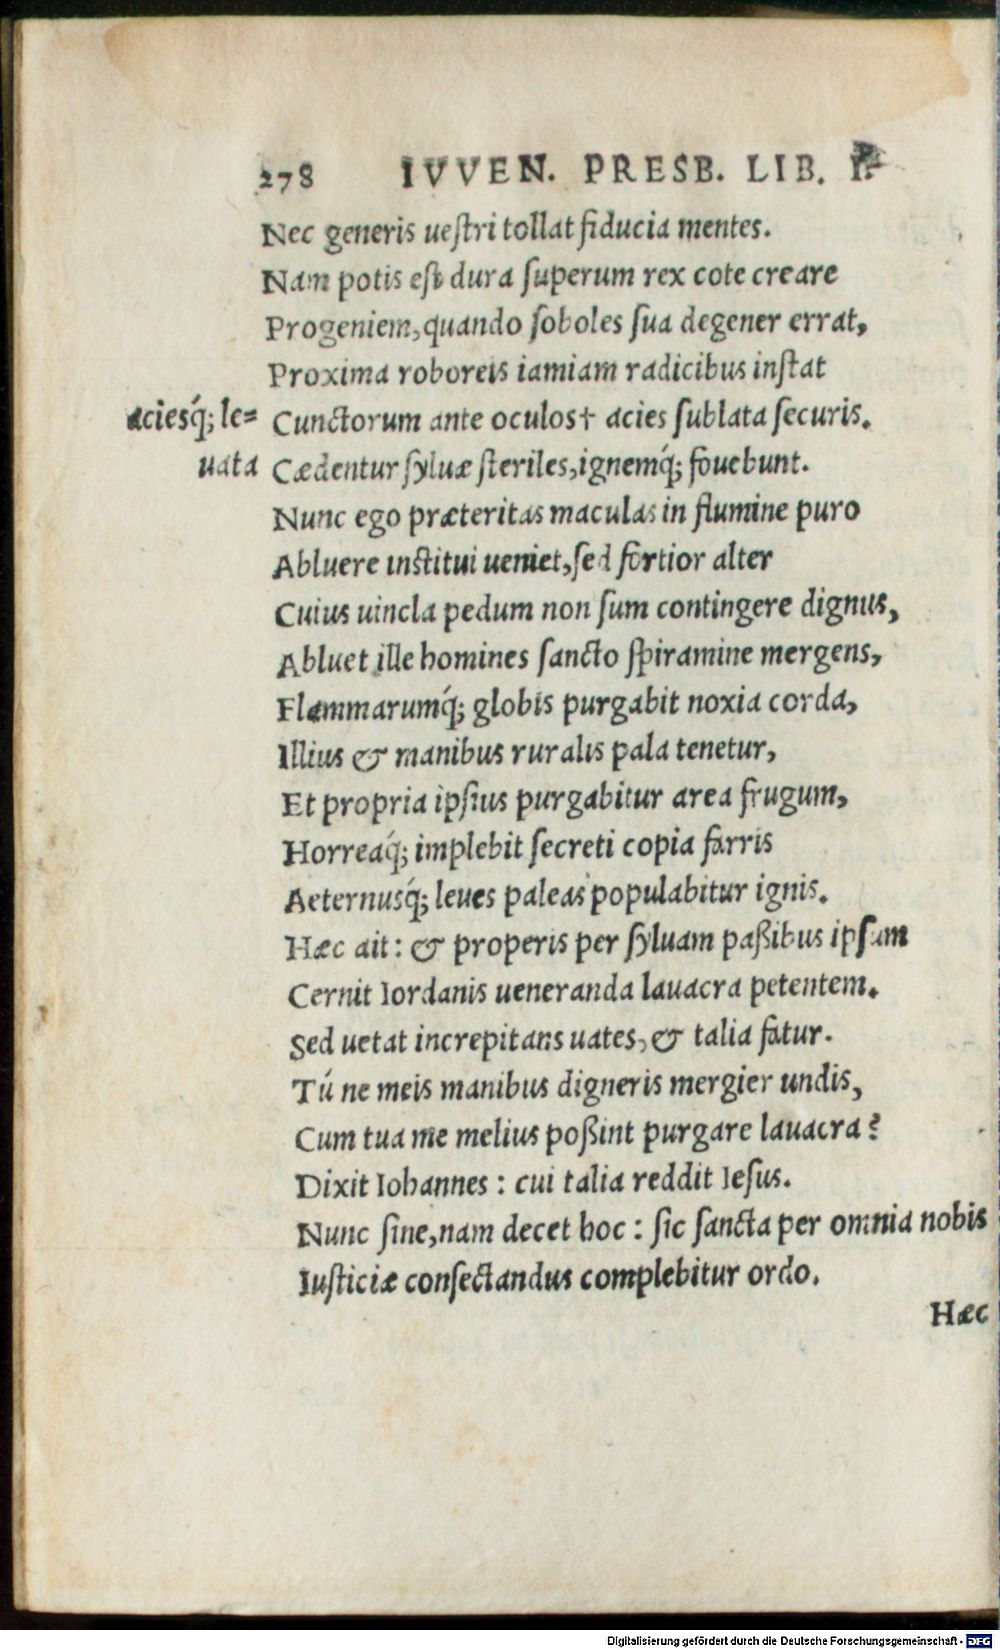 278 IVVEN. PRESB. LIB. I.
Nec generis uestri tollat fiducia mentes.
Nam potis est dura superum rex cote creare
Progeniem, quando soboles sua degener errat,
Proxima roboreis iamiam radicibus instat
aciesq́; le=
Cunctorum ante oculos† acies sublata securis.
uata
Cædentur syluæ steriles, ignemq́; fouebunt.
Nunc ego præteritas maculas in flumine puro
Abluere institui ueniet, sed fortior alter
Cuius uincla pedum non sum contingere dignus,
Abluet ille homines sancto spiramine mergens,
Flammarumq́; globis purgabit noxia corda,
Illius & manibus ruralis pala tenetur,
Et propria ipsius purgabitur area frugum,
Horreaq́; implebit secreti copia farris
Aeternusq́; leues paleas populabitur ignis.
Hæc ait: & properis per syluam paßibus ipsum
Cernit Iordanis ueneranda lauacra petentem.
Sed uetat increpitans uates, & talia fatur.
Tú ne meis manibus digneris mergier undis,
Cum tua me melius poßint purgare lauacra?
Dixit Iohannes: cui talia reddit Iesus.
Nunc sine, nam decet hoc: sic sancta per omnia nobis
Iusticiæ consectandus complebitur ordo.
Hæc
Digitalisierung gefördert durch die Deutsche Forschungsgemeinschaft - DFG